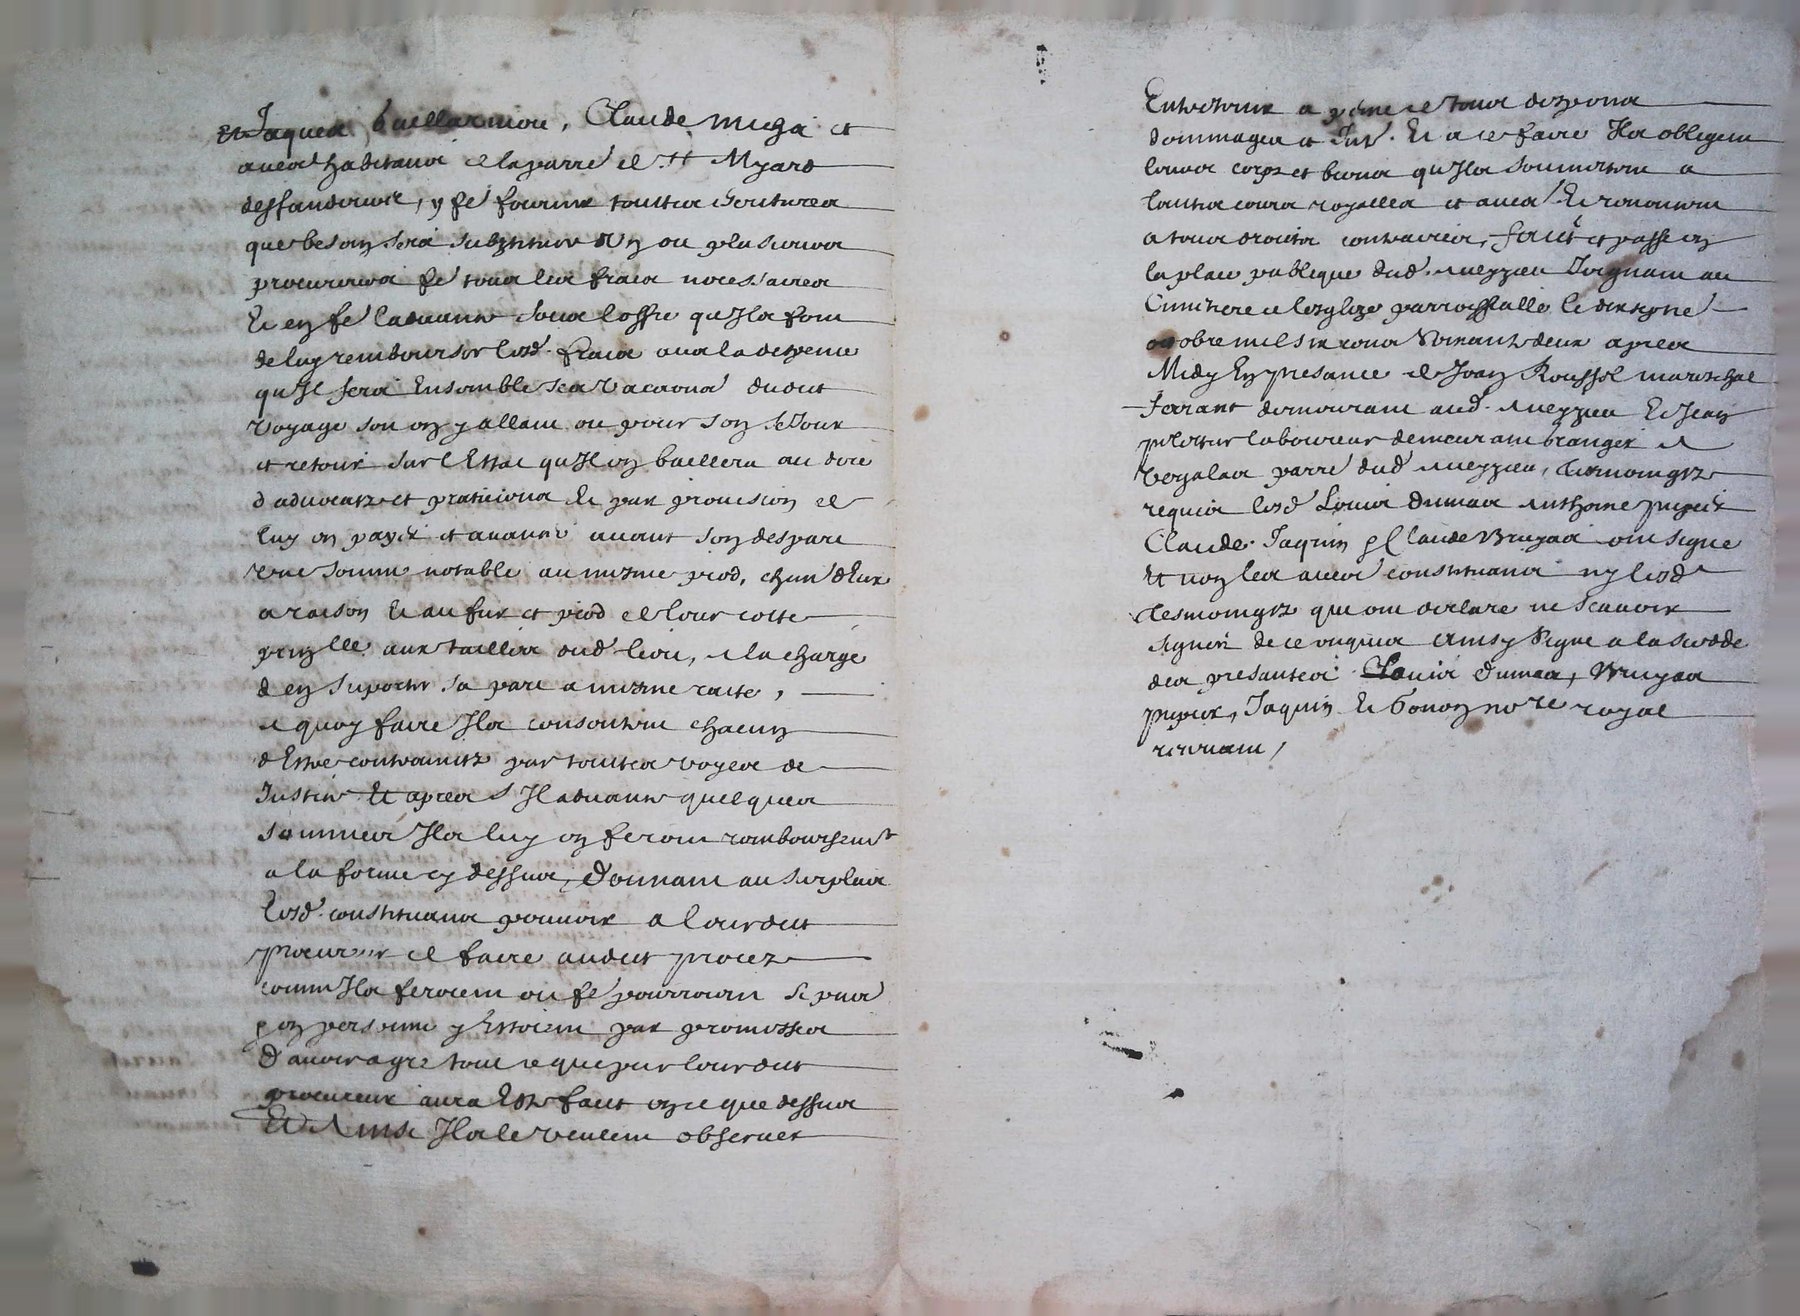 Et Jaques baillarmion, Claude muga et
aues habitans de la parre de St Myard
deffandeurs, y fe fournir touttes Escritures
que besoin sera substituer Un ou plusieurs
procureurs fe tous les frais necessaires
Et en fe ladvance soub loffre qu Ils font
de luy rembourser lesd. frais aues la despence
qu Il fera Ensemble ses vacaons dudit
voyage soit en y allant ou pour son seJour
et retour sur lEstat qu Il en baillera au dire
d advocatz et praticiens Et par provision de
luy en payer et avancer avant son despart
une somme notable au mesme pied, chun dEux
a raison Et au fur et pied de leur cotte
aux tailles dud. lieu, a la charge
d en suporter sa part a mesme raite,
a quoy faire Ils consentent chacun
dEstre contraintz par touttes voyes de
Justice Et apres s Il advance quelques
sommes Ils luy en feront remboursemt
a la forme cy dessus, donnant au surplus
lesd. constituans pouvoir a leurdit
procureur de faire audit procez
comme Ils feroient ou fe pourroient sy
en personne y Estoient par promesses
d avoir agre tout ce que par leurdit
procureur aura Esté fait en ce que dessus
Et Ainsi Ils le veulent observer
Entretenir a peine de tous despens
dommages et Int. Et a ce faire Ils obligent
leurs corps et biens qu Ils soumettent a
touttes cours royalles et aues Et renoncent
a tous droits contraires, fait et passe en
la place publique dud. meyzieu Joignant au
Cimitiere de lesglize parrossialle le dixiesme
octobre mil six cens soixante deux apres
Midy En presance de Jean Roussel mareschal
ferrant demeurant aud. meyzieu Et Jean
laboureur demeurant a
parre dud. meyzieu, tesmoingtz
requis lesd. Louis dumas Anthoine
Claude Jaquin Claude Bruyas ont signe
Et non les aues constituans ny lesd.
tesmoingtz qui ont declare ne scavoir
signer de ce enquis Ainsy Signe a la sudde
des presantes Louis dumas, Bruyas
Jaquin Et bonon nore royal
recevant,